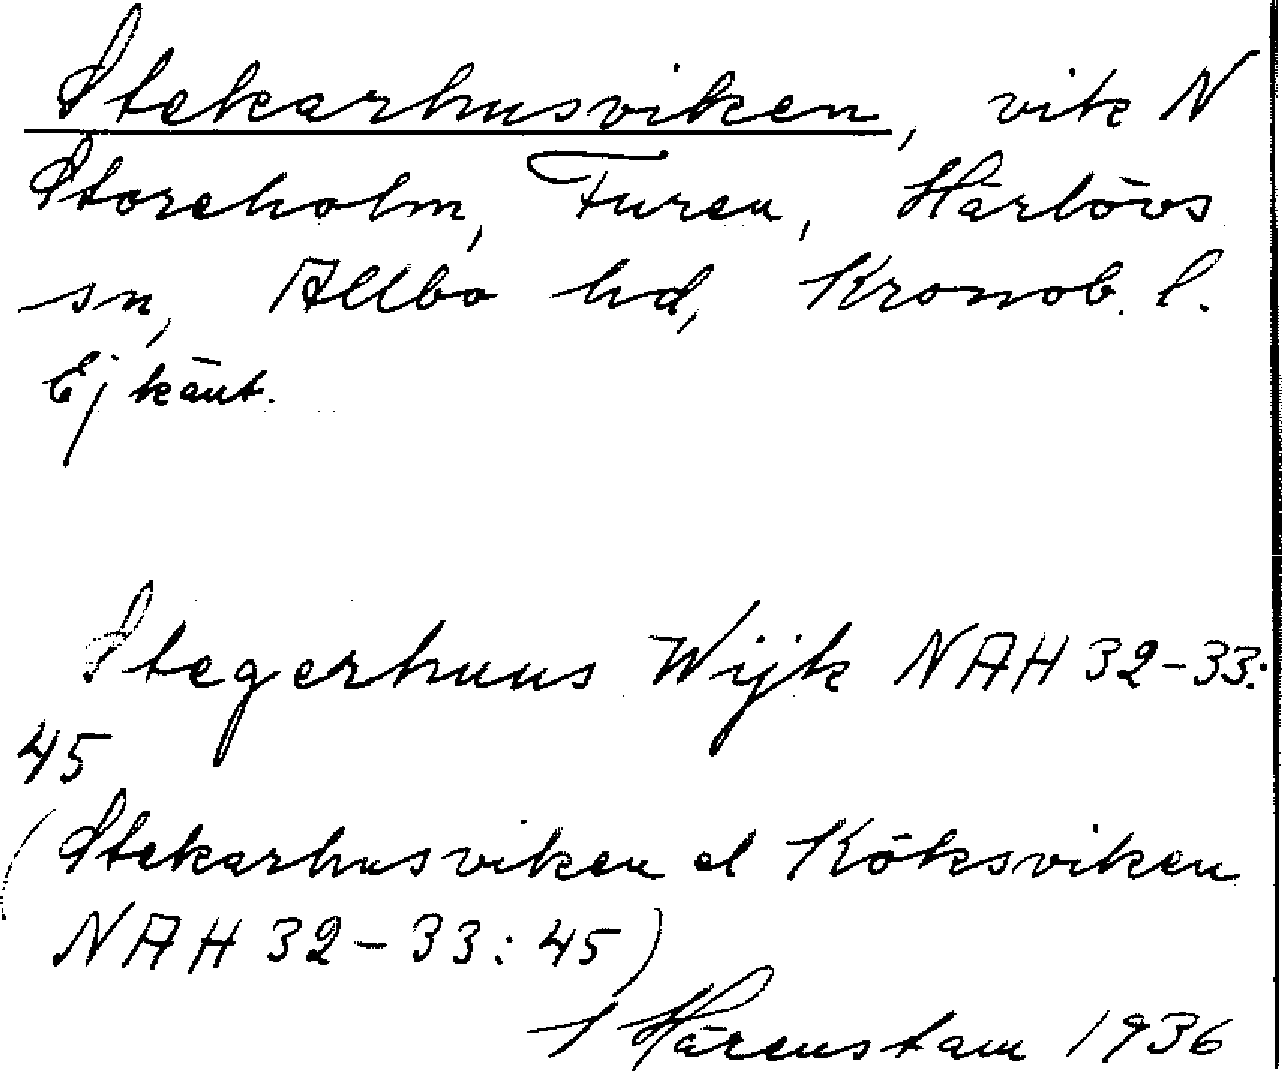 Stekarhusviken, vik N
Storeholm, Furen, Härlövs
sn, Allbo hd, Kronob. l.
Ej känt.
Stegerhuus Wijk NAH 32-33:
45
(Stekarhusviken el Köksviken
NAH 32-33:45)
I Härenstam 1936